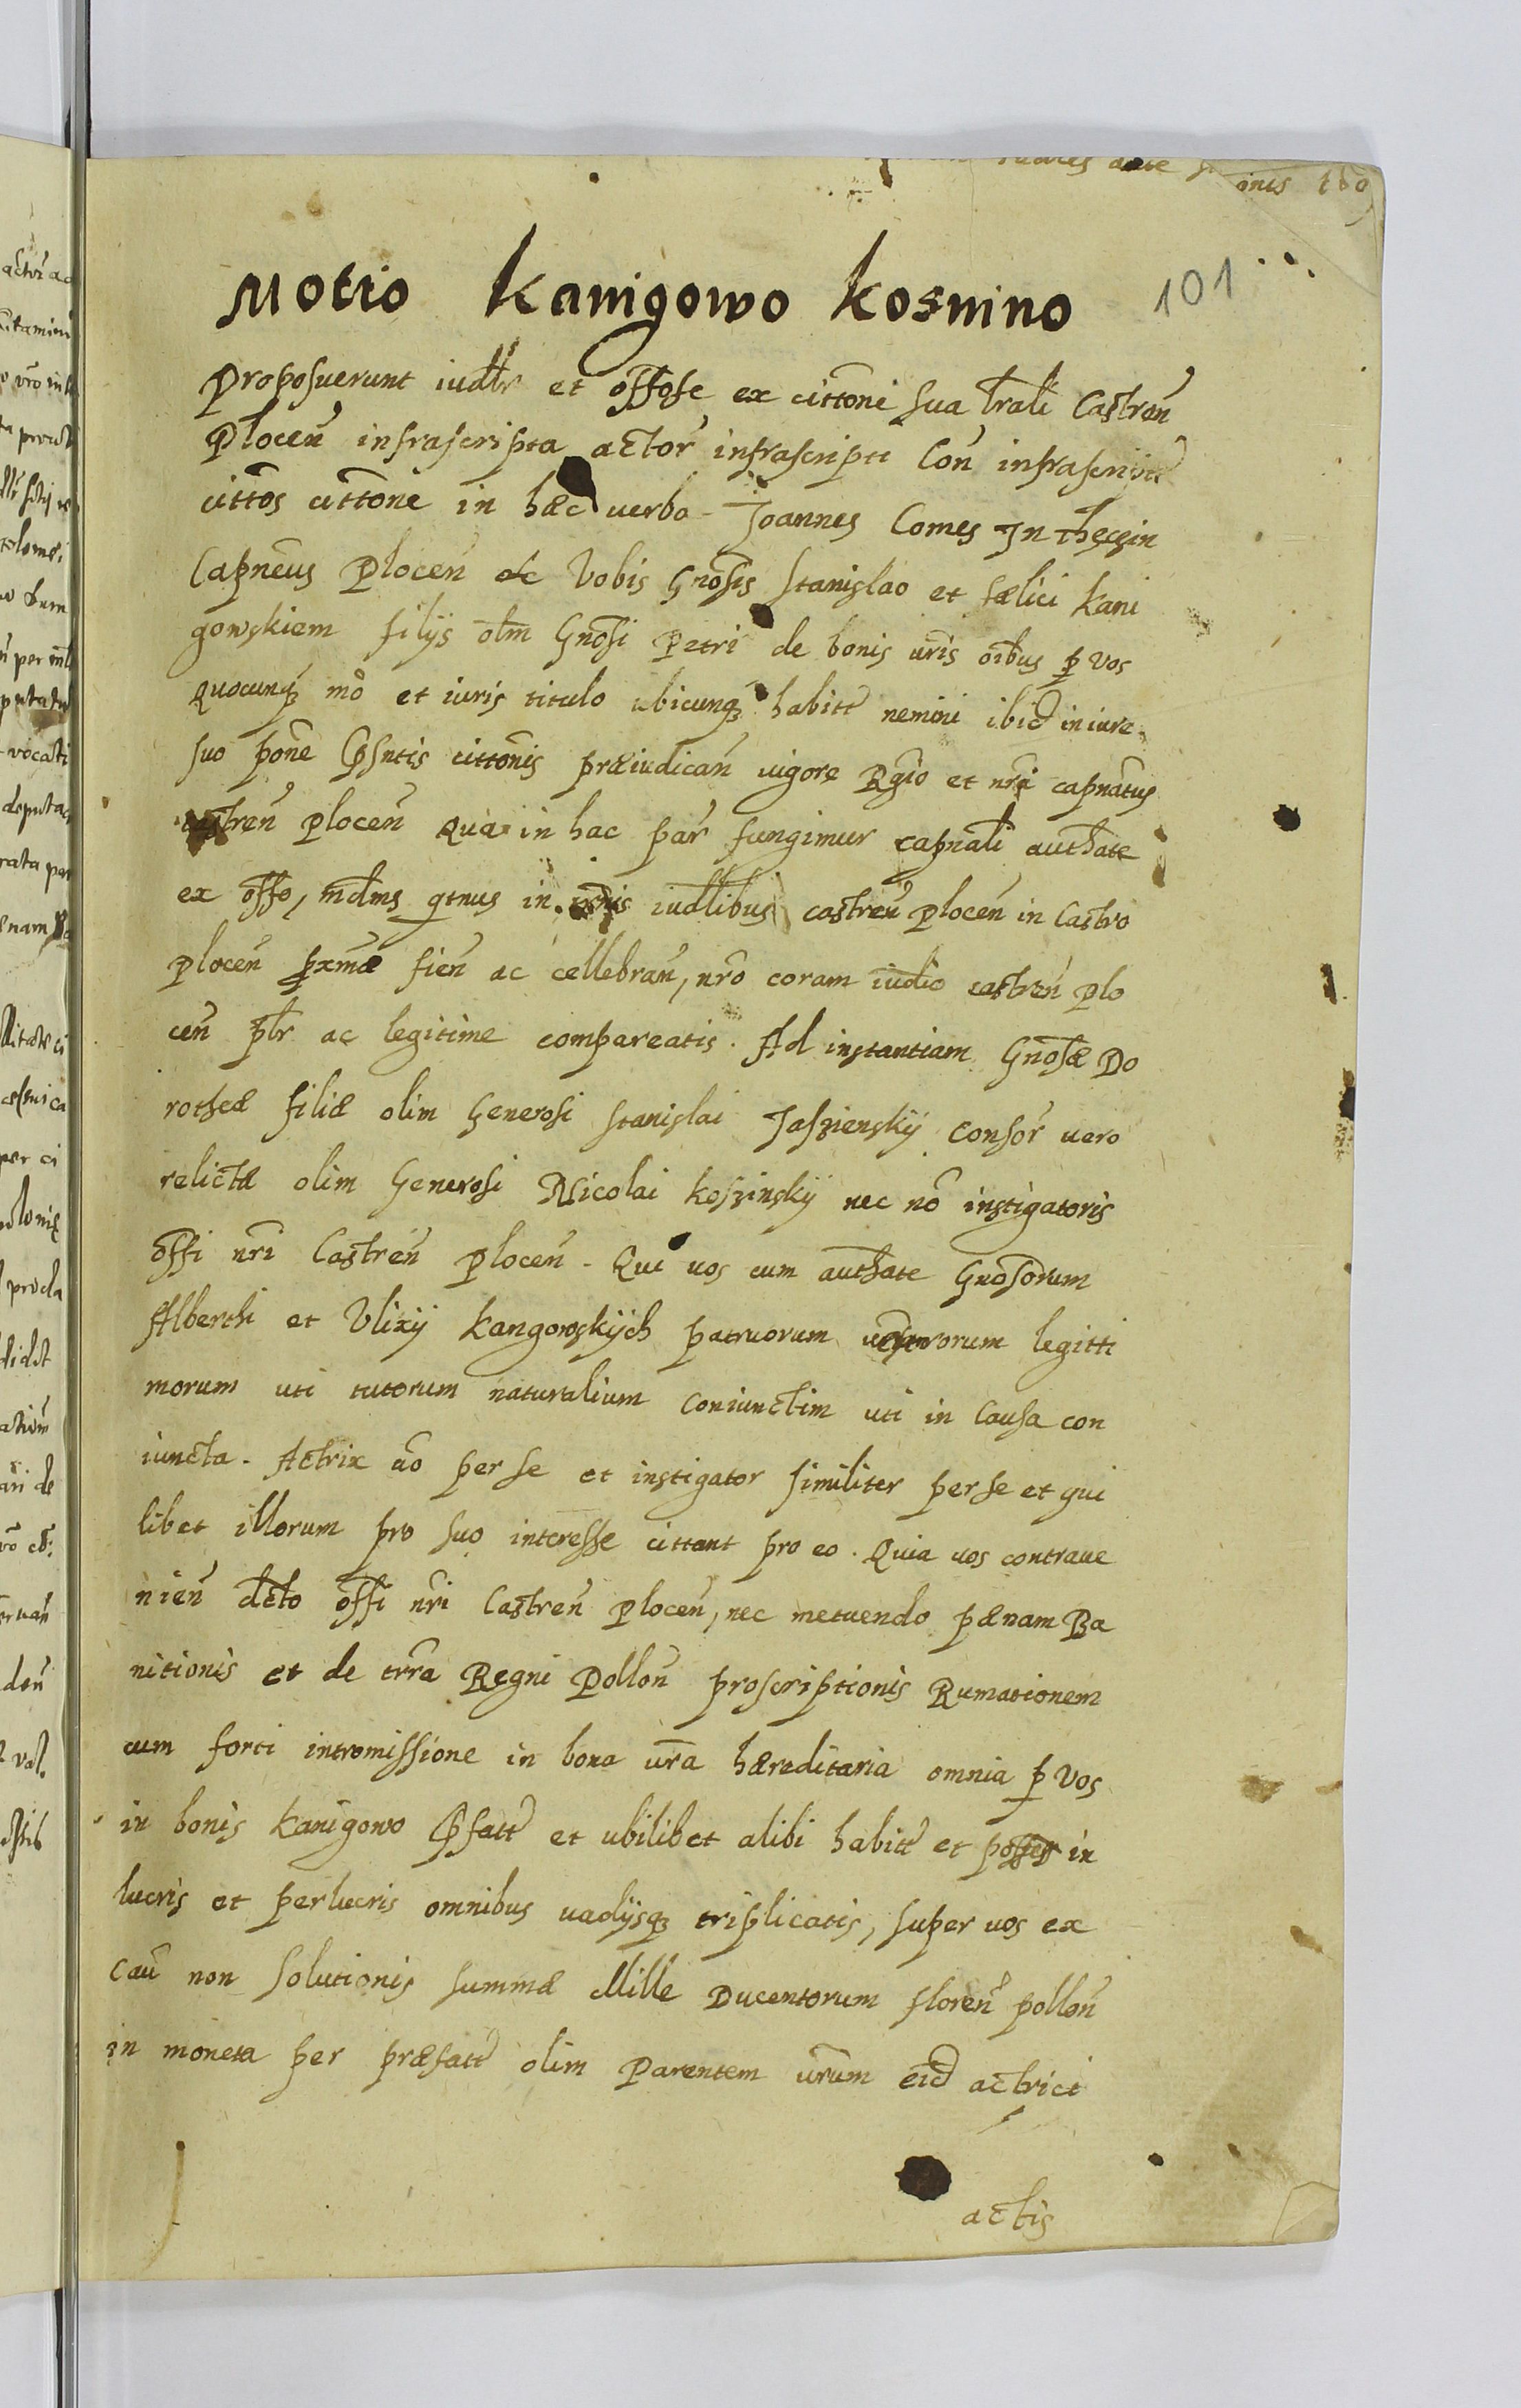 101
Motio Kanigowo Kosnino
Proposuerunt iudlr et offose ex cittone sua lrali Castren
Plocen infrascripta actor infrascripti Con infrascript
cittos cittone in hæc uerba - Joannes Comes In Theczin
Capneus Plocen etc Vobis Gnosis Stanislao et fælici Kani
gowskiem filijs olm Gnosi Petri de bonis uris oibus p vos
quocunq mo et iuris titulo ubicunq habitt nemini ibid in iure
suo pone psntis cittonis præiudican uigore Rgio et nri capnatus
castren plocen qua in hac par fungimur capnali authate
ex offo, mdms qtnus in iudlibus castren plocen in Castro
plocen pxmæ fien ac cellebran, nro coram iudio castren plo
cen plr ac legitime compareatis. Ad instantiam Gnosæ Do
rotheæ filiæ olim Generosi Stanislai Jaszienskij consor uero
relictæ olim Generosi Nicolai Koszinskij nec no instigatoris
offi nri Castren plocen - Qui uos cum authate Gnosorum
Alberthi et Vlixij Kangowskijch patruorum legitti
morum uti tutorum naturalium coniunctim uti in Causa con
iuncta - Actrix uo per se et instigator similiter per se et qui
libet illorum pro suo interesse cittant pro eo. Quia uos contraue
nien dcto offi nri Castren plocen, nec metuendo pænam Ba
nitionis et de trra Regni Pollon proscriptionis Rumationem
cum forti intromissione in bona ura hæreditaria omnia p vos
in bonis Kanigowo pfatt et ubilibet alibi habitt et posses in
lucris et perlucris omnibus uadijsq triplicatis, super uos ex
cau non solutionis summæ Mille Ducentorum floren pollon
in moneta per præfatt olim Parentem urum eid actrici
actis